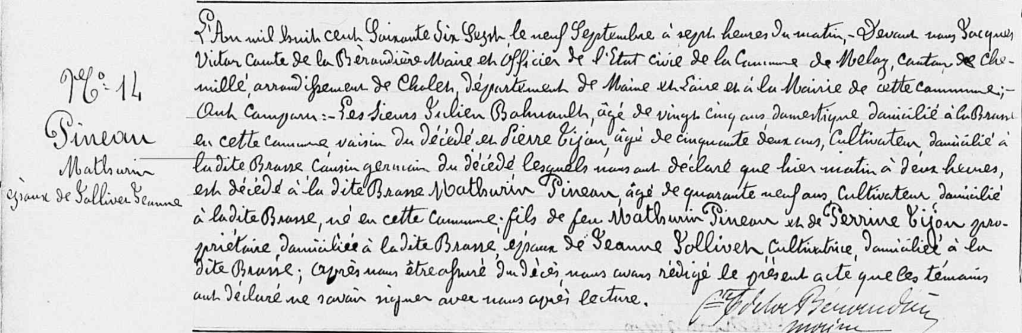 N.o 14
Pineau
Mathurin
époux de Jolliver Jeanne
L'An mil huit cent Soixante dix Sept le neuf Septembre à sept heures du matin – Devant nous Jacques
Victor Comte de la Béraudière Maire et Officier de l'Etat civil de la Commune de Melay, canton de Che-
millé, arrondissement de Cholet, département de Maine et Loire et à la Mairie de cette commune; –
Ont Comparu: – Les Sieurs Julien Bahuault, âgé de vingt cinq ans domestique, domicilié à la Brosse
en cette commune voisin du décédé et Pierre Tijou, âgé de cinquante deux ans, Cultivateur, domicilié à
la dite Brosse Cousin germain du décédé lesquels nous ont déclaré que hier matin à deux heures,
est décédé à la dite Brosse Mathurin Pineau, âgé de quarante neuf ans Cultivateur domicilié
à la dite Brosse, né en cette Commune; fils de feu Mathurin Pineau et de Perrine Tijou pro-
priétaire, domiciliée à la dite Brosse, époux de Jeanne Jolliver, Cultivatrice, domiciliée à la
dite Brosse; Après nous être assuré du décès nous avons rédigé le présent acte que les témoins
ont déclaré ne savoir signer avec nous après lecture.
Cte Victor Béraudière
maire